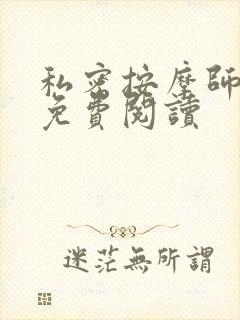 私密按摩師
免費閱讀
迷茫無所謂